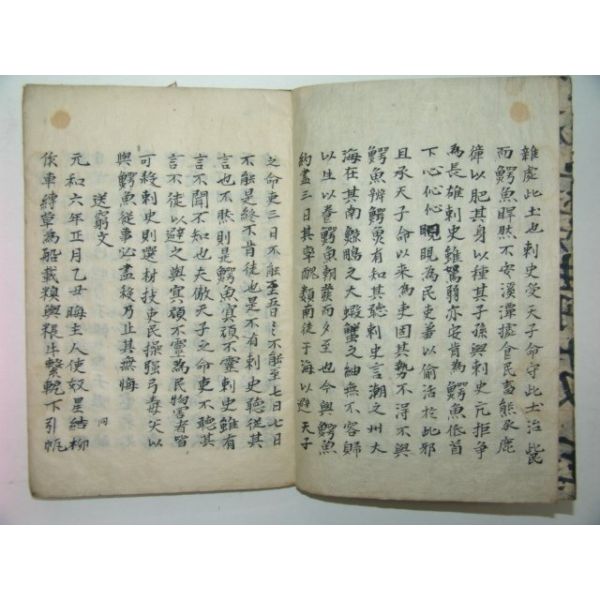 雜處此土也刺史受天子命守此土治此民
而鱷魚睅然不安溪潭據食民畜熊豕鹿
獐以肥其身以種其子孫與刺史亢拒爭
為長雄刺史雖駑弱亦安肯為鱷魚低首
下心伈伈睍睍為民吏羞以偷活於此邪
且承天子命以來為吏固其勢不得不與
鱷魚辨鱷魚有知其聽刺史言潮之州大
海在其南鯨鵬之大蝦蟹之細無不容歸
以生以食鱷魚朝發而夕至也今與鱷魚
約盡三日其率醜類南徙于海以避天子
之命吏三日不能至 日 不能至七日七日
不能是終不肯徙也是不有刺史聽從其
言也不然則是鱷魚冥頑不靈刺史雖有
言不聞不知也夫傲天子之命吏不聽其
言不徙以避之與冥頑不靈為民物害者皆
可殺刺史則選材技吏民操强弓毒矢以
與鱷魚從事必盡殺乃止其無悔
送窮文 同
元和六年正月乙丑晦主人使奴星結柳
車縛草為船載糗與粻牛繫軛下引帆